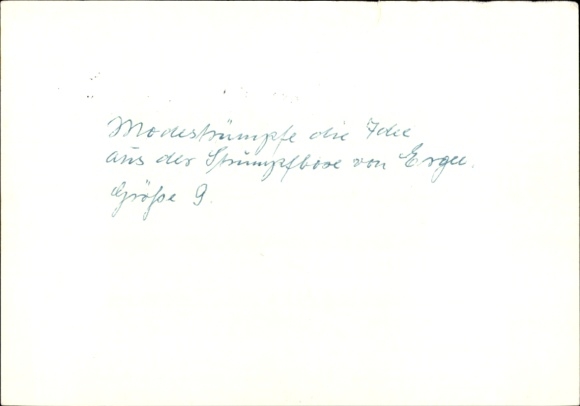 Modestrümpfe die Idee
aus der Strumpfboxe von Ergee.
Größe 9.